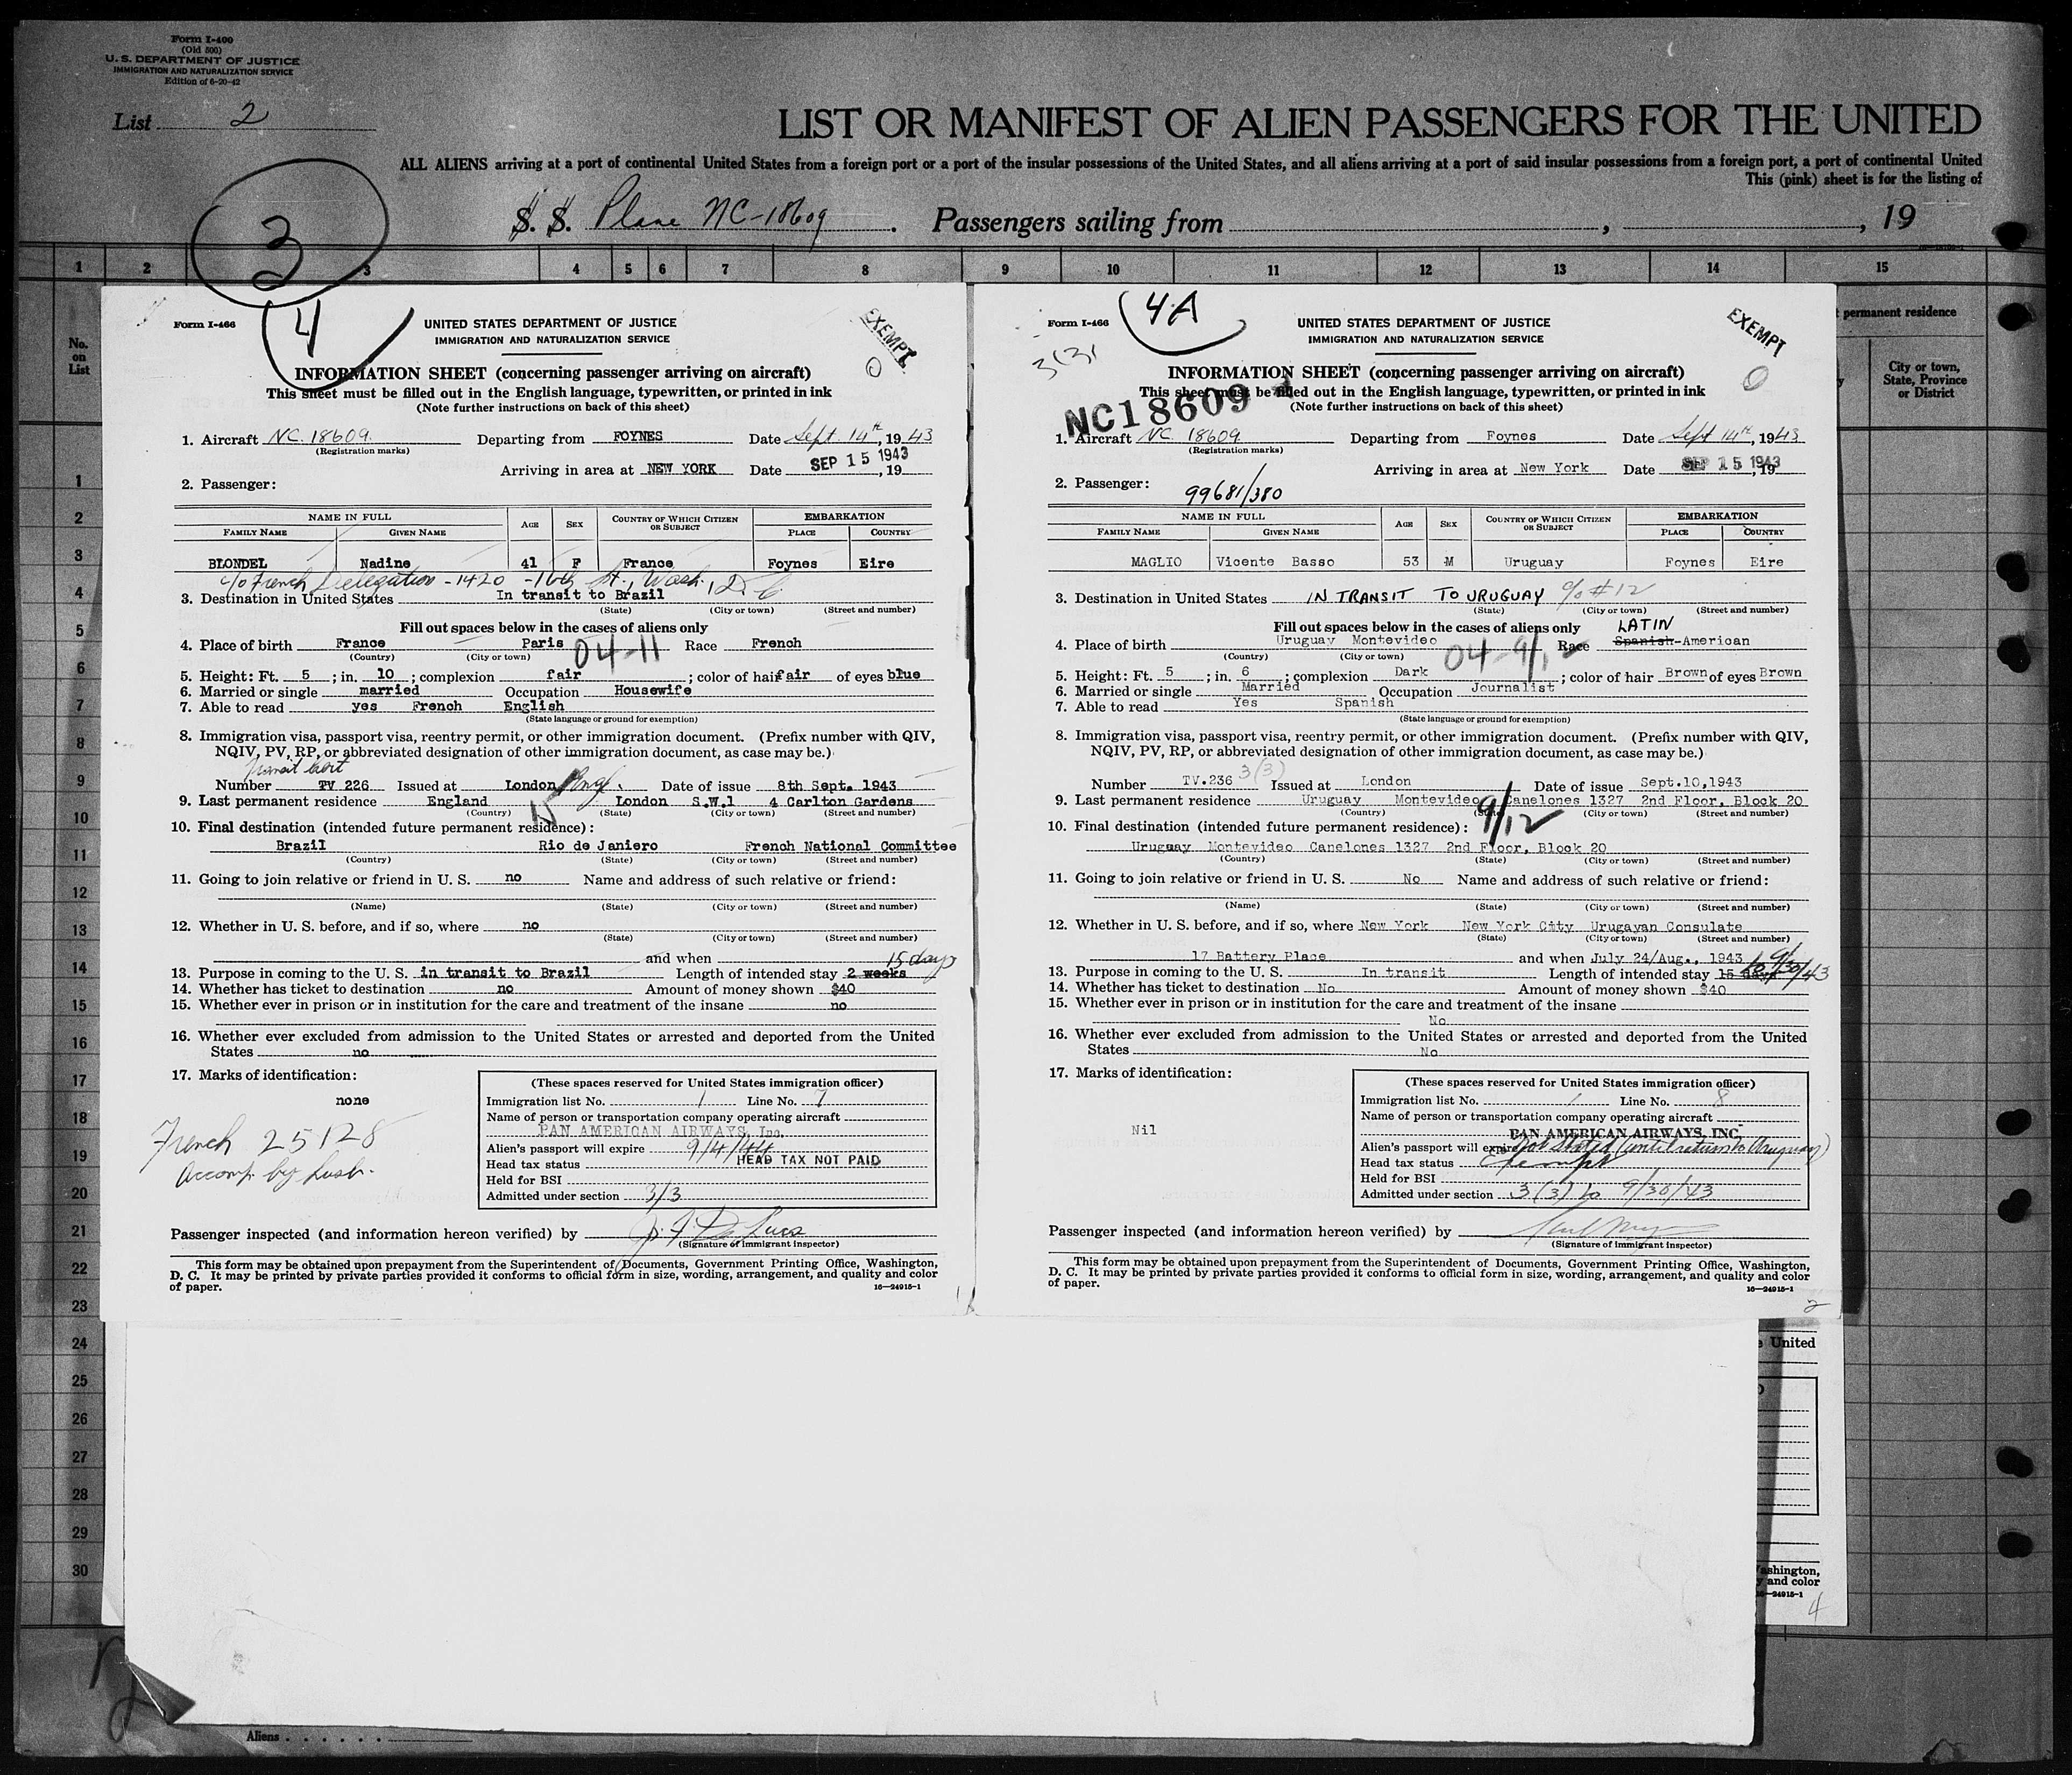 Form I-400
(Old 500)
U. S. DEPARTMENT OF JUSTICE
IMMIGRATION AND NATURALIZATION SERVICE
Edition of 6-20-42
List 2
LIST OR MANIFEST OF ALIEN PASSENGERS FOR THE UNITED
ALL ALIENS arriving at a port of continental United States from a foreign port or a port of the insular possessions of the United States, and all aliens arriving at a port of said insular possessions from a foreign port, a port of continental United
This (pink) sheet is for the listing of
3
S. S. Plane NC-18609. Passengers sailing from , , 19
1 2 3 4 5 6 7 8 9 10 11 12 13 14 15
No. on List
permanent residence
City or town, State, Province or District
1
2
3
4
5
6
7
8
9
10
11
12
13
14
15
16
17
18
19
20
21
22
23
24
25
26
27
28
29
30
Form I-466
4
UNITED STATES DEPARTMENT OF JUSTICE
IMMIGRATION AND NATURALIZATION SERVICE
EXEMPT
0
INFORMATION SHEET (concerning passenger arriving on aircraft)
This sheet must be filled out in the English language, typewritten, or printed in ink
(Note further instructions on back of this sheet)
1. Aircraft NC. 18609. Departing from FOYNES Date Sept. 14th, 1943
(Registration marks)
Arriving in area at NEW YORK Date SEP 15 1943, 19
2. Passenger:
NAME IN FULL AGE SEX COUNTRY OF WHICH CITIZEN OR SUBJECT EMBARKATION
FAMILY NAME GIVEN NAME PLACE COUNTRY
BLONDEL Nadine 41 F France Foynes Eire
c/o French Delegation - 1420 - 16th St., Wash., D. C
3. Destination in United States In transit to Brazil
(State) (City or town) (Street and number)
Fill out spaces below in the cases of aliens only
4. Place of birth France Paris 04-11 Race French
(Country) (City or town)
5. Height: Ft. 5 ; in. 10 ; complexion fair ; color of hair fair of eyes blue
6. Married or single married Occupation Housewife
7. Able to read yes French English
(State language or ground for exemption)
8. Immigration visa, passport visa, reentry permit, or other immigration document. (Prefix number with QIV,
NQIV, PV, RP, or abbreviated designation of other immigration document, as case may be.)
Transit Cert
Number TV 226 Issued at London Engl. Date of issue 8th Sept. 1943
9. Last permanent residence England London S.W.1 4 Carlton Gardens
(Country) (State) (City or town) (Street and number)
10. Final destination (intended future permanent residence):
Brazil Rio de Janiero French National Committee
(Country) (State) (City or town) (Street and number)
11. Going to join relative or friend in U. S. no Name and address of such relative or friend:
(Name) (State) (City or town) (Street and number)
12. Whether in U. S. before, and if so, where no
(State) (City or town) (Street and number)
and when
15 days
13. Purpose in coming to the U. S. in transit to Brazil Length of intended stay 2 weeks
14. Whether has ticket to destination no Amount of money shown $40
15. Whether ever in prison or in institution for the care and treatment of the insane no
16. Whether ever excluded from admission to the United States or arrested and deported from the United
States no
17. Marks of identification:
none
French 25128
Accomp. by husb.
(These spaces reserved for United States immigration officer)
Immigration list No. 1 Line No. 7
Name of person or transportation company operating aircraft
PAN AMERICAN AIRWAYS, Inc.
Alien's passport will expire 9/4/44
Head tax status HEAD TAX NOT PAID
Held for BSI
Admitted under section 3/3
Passenger inspected (and information hereon verified) by
(Signature of immigrant inspector)
This form may be obtained upon prepayment from the Superintendent of Documents, Government Printing Office, Washington,
D. C. It may be printed by private parties provided it conforms to official form in size, wording, arrangement, and quality and color
of paper.
16—24915-1
Form I-466
4A
3(3)
UNITED STATES DEPARTMENT OF JUSTICE
IMMIGRATION AND NATURALIZATION SERVICE
EXEMPT
0
INFORMATION SHEET (concerning passenger arriving on aircraft)
This sheet must be filled out in the English language, typewritten, or printed in ink
(Note further instructions on back of this sheet)
NC18609
1. Aircraft NC. 18609 Departing from Foynes Date Sept 14th, 1943
(Registration marks)
Arriving in area at New York Date SEP 15 1943, 19
2. Passenger: 99681/380
NAME IN FULL AGE SEX COUNTRY OF WHICH CITIZEN OR SUBJECT EMBARKATION
FAMILY NAME GIVEN NAME PLACE COUNTRY
MAGLIO Vicente Basso 53 M Uruguay Foynes Eire
3. Destination in United States IN TRANSIT TO URUGUAY c/o #12
(State) (City or town) (Street and number)
Fill out spaces below in the cases of aliens only LATIN
4. Place of birth Uruguay Montevideo 04-9/12 Race Spanish-American
(Country) (City or town)
5. Height: Ft. 5 ; in. 6 ; complexion Dark ; color of hair Brown of eyes Brown
6. Married or single Married Occupation Journalist
7. Able to read Yes Spanish
(State language or ground for exemption)
8. Immigration visa, passport visa, reentry permit, or other immigration document. (Prefix number with QIV,
NQIV, PV, RP, or abbreviated designation of other immigration document, as case may be.)
Number TV.236 3(3) Issued at London Date of issue Sept.10,1943
9. Last permanent residence Uruguay Montevideo Canelones 1327 2nd Floor, Block 20
(Country) (State) (City or town) (Street and number)
10. Final destination (intended future permanent residence): 9/12
Uruguay Montevideo Canelones 1327 2nd Floor, Block 20
(Country) (State) (City or town) (Street and number)
11. Going to join relative or friend in U. S. No Name and address of such relative or friend:
(Name) (State) (City or town) (Street and number)
12. Whether in U. S. before, and if so, where New York New York City Urugayan Consulate
(State) (City or town) (Street and number)
17 Battery Place and when July 24/Aug., 1943
13. Purpose in coming to the U. S. In transit Length of intended stay 15 days 9/30/43
14. Whether has ticket to destination No Amount of money shown $40
15. Whether ever in prison or in institution for the care and treatment of the insane
No
16. Whether ever excluded from admission to the United States or arrested and deported from the United
States No
17. Marks of identification:
Nil
(These spaces reserved for United States immigration officer)
Immigration list No. 1 Line No. 8
Name of person or transportation company operating aircraft
PAN AMERICAN AIRWAYS, INC.
Alien's passport will expire Not Stated (until return to Uruguay)
Head tax status Exempt
Held for BSI
Admitted under section 3(3) to 9/30/43
Passenger inspected (and information hereon verified) by
(Signature of immigrant inspector)
This form may be obtained upon prepayment from the Superintendent of Documents, Government Printing Office, Washington,
D. C. It may be printed by private parties provided it conforms to official form in size, wording, arrangement, and quality and color
of paper.
16—24915-1
2
United
ashington,
y and color
24915-1
4
2
Aliens